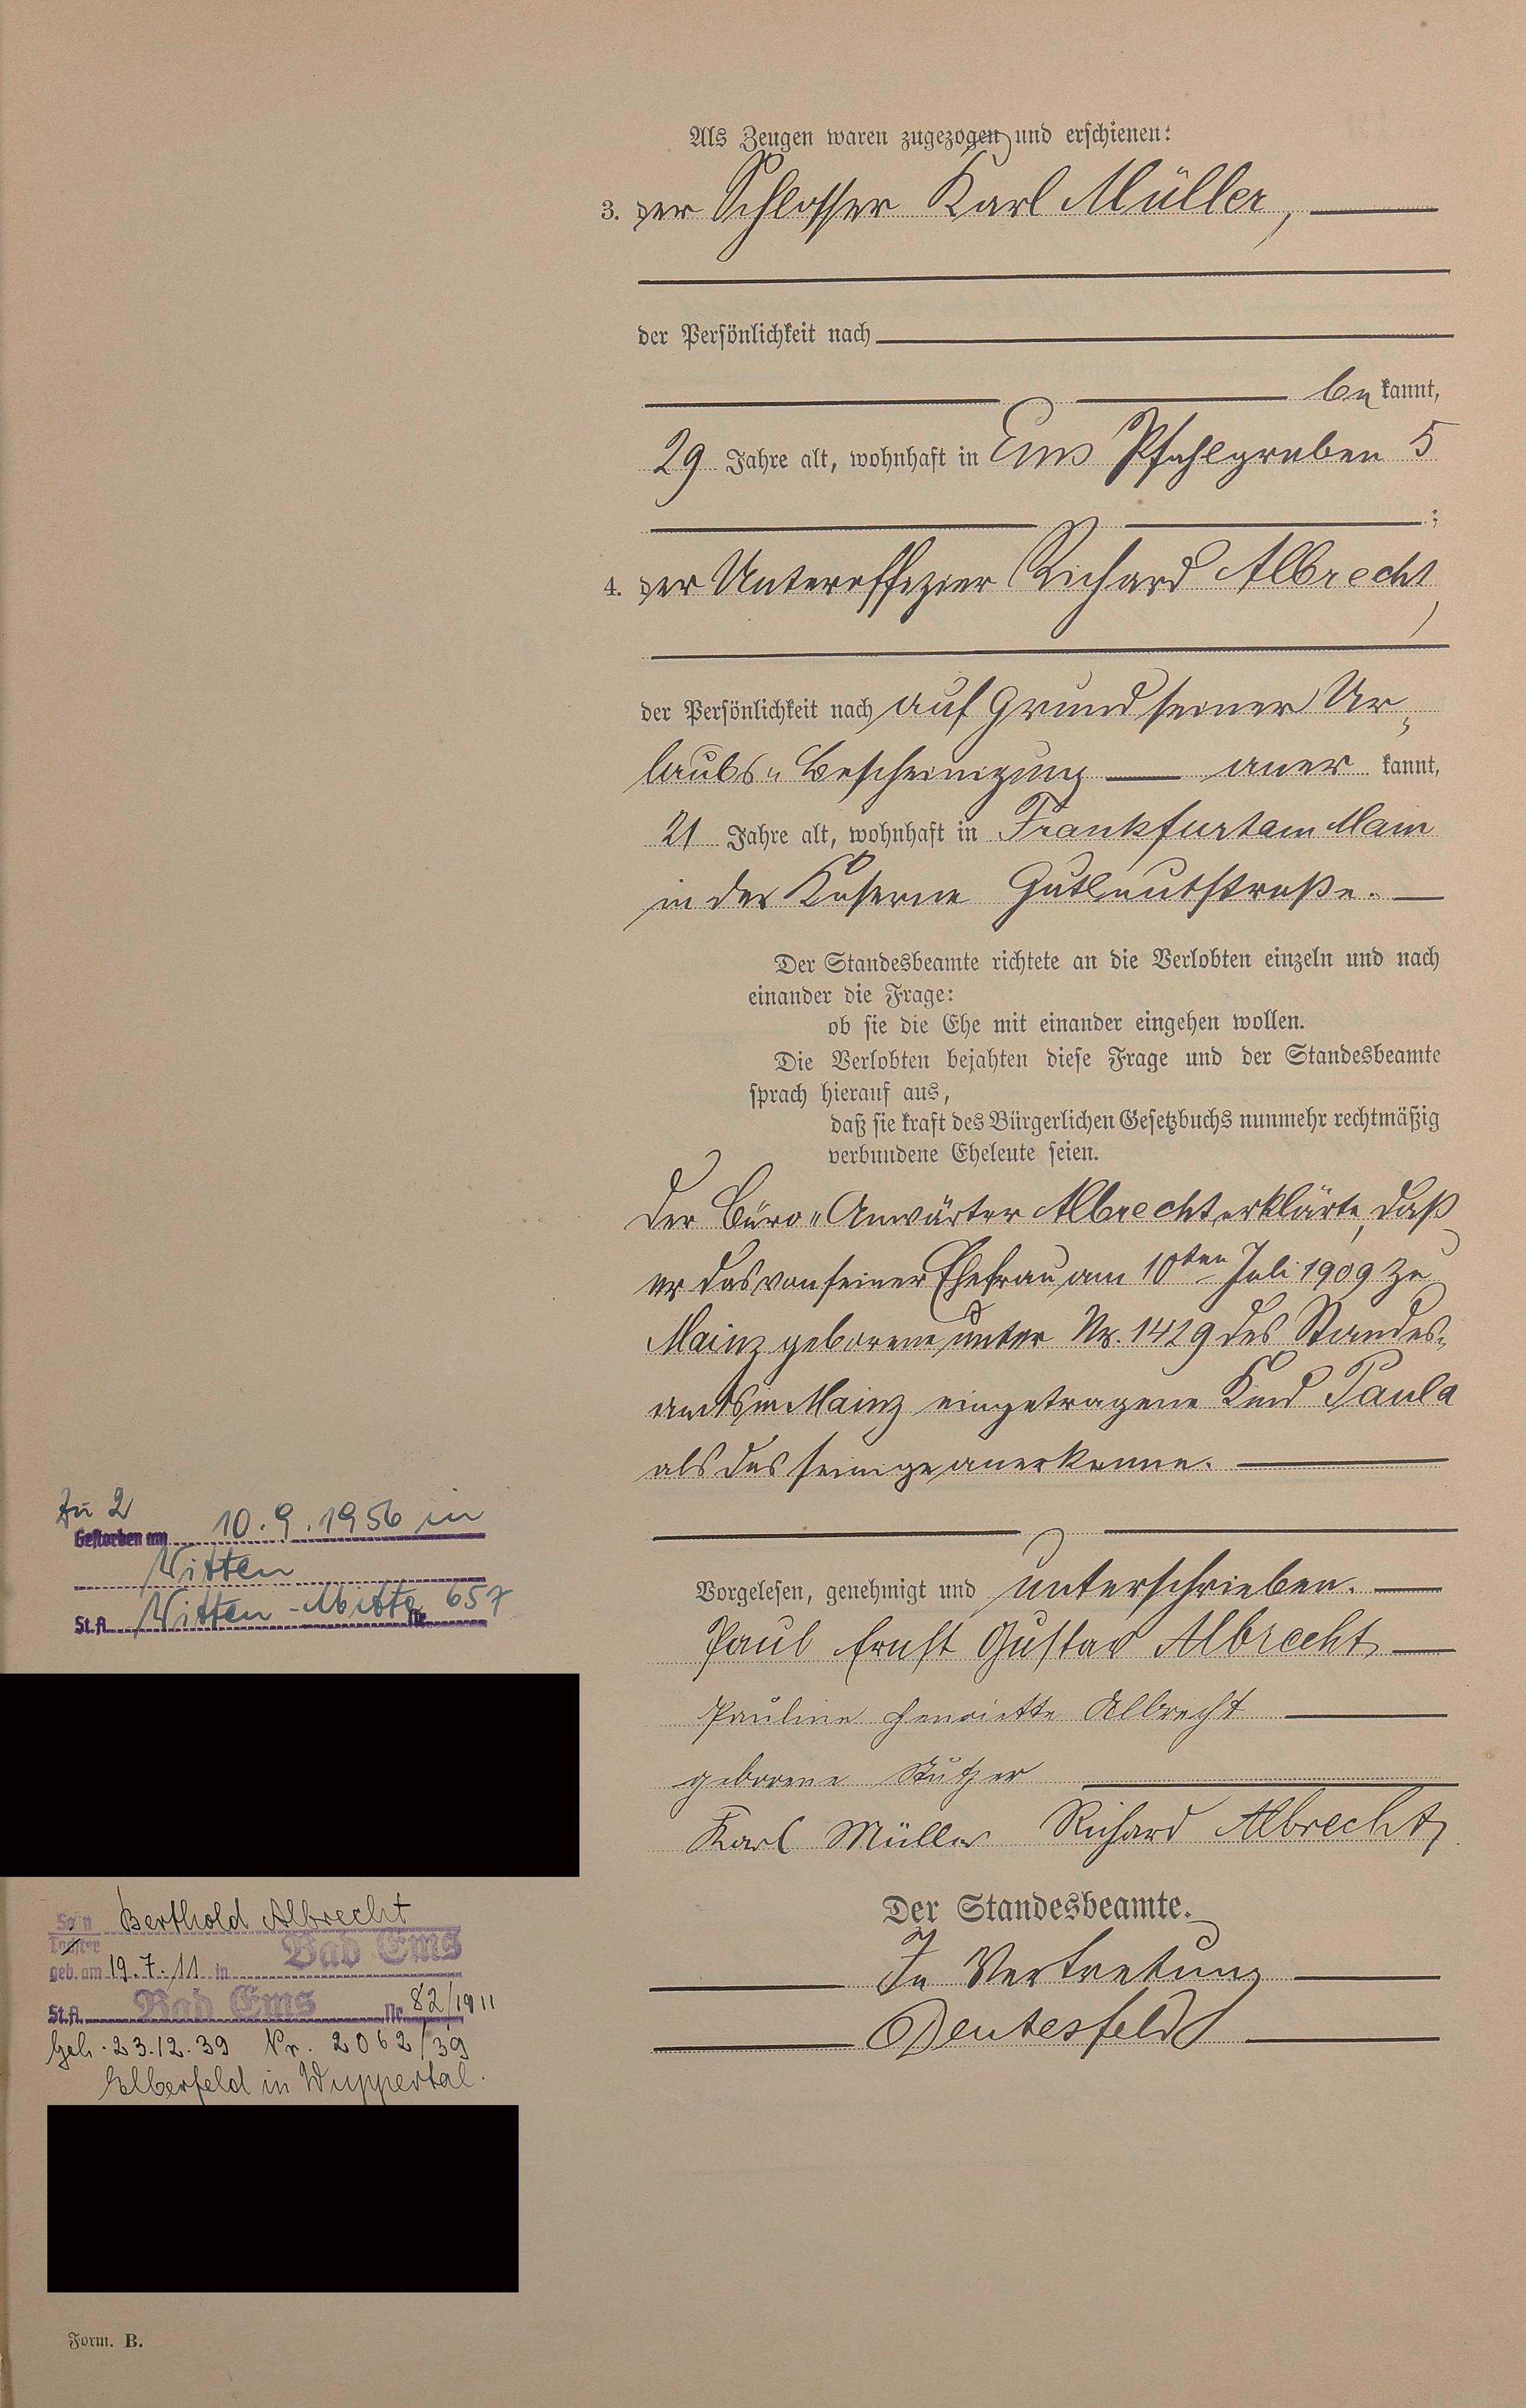 Als Zeugen waren zugezogen und erschienen:
3. der Schlosser Karl Müller,
der Persönlichkeit nach
be kannt,
29 Jahre alt, wohnhaft in Ems Pfahlgraben 5
;
4. der Unteroffizier Richard Albrecht,
der Persönlichkeit nach auf Grund seiner Ur-
laubs-Bescheinigung aner kannt,
21 Jahre alt, wohnhaft in Frankfurt am Main
in der Kaserne Gutleutstraße.
Der Standesbeamte richtete an die Verlobten einzeln und nach
einander die Frage:
ob sie die Ehe mit einander eingehen wollen.
Die Verlobten bejahten diese Frage und der Standesbeamte
sprach hierauf aus,
daß sie kraft des Bürgerlichen Gesetzbuchs nunmehr rechtmäßig
verbundene Eheleute seien.
Der Büro-Anwärter Albrecht erklärte, daß
er das von seiner Ehefrau am 10ten Juli 1909 zu
Mainz geborene unter Nr. 1429 des Standes-
amts in Mainz eingetragene Kind Paula
als das seinige anerkenne.
Vorgelesen, genehmigt und unterschrieben.
Paul Ernst Gustav Albrecht
Pauline Henriette Albrecht
geborene Stutzer
Karl Müller Richard Albrecht
Der Standesbeamte.
In Vertretung
Deutesfeld
Zu 2
Gestorben am 10.9.1956 in
Witten
St.A. Witten-Mitte Nr. 657
Sohn Berthold Albrecht
Tochter
geb. am 19.7.11 in Bad Ems
St.A. Bad Ems Nr. 82/1911
Geh. 23.12.39 Nr. 2062/39
Elberfeld in Wuppertal.
Form. B.